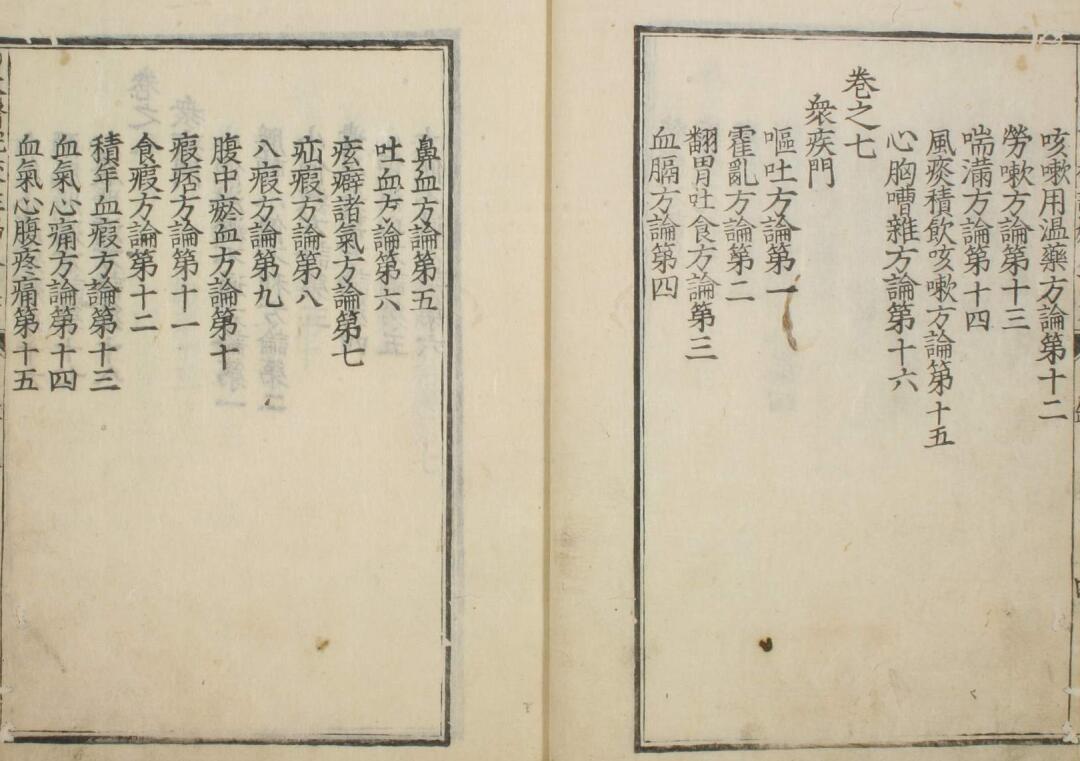 咳嗽用温藥方論第十二
勞嗽方論第十三
喘滿方論第十四
風痰積飲咳嗽方論第十五
心胸嘈雜方論第十六
卷之七
衆疾門
嘔吐方論第一
霍亂方論第二
翻胃吐食方論第三
血膈方論第四
鼻血方論第五
吐血方論第六
痃癖諸氣方論第七
疝瘕方論第八
八瘕方論第九
腹中瘀血方論第十
瘕痞方論第十一
食瘕方論第十二
積年血瘕方論第十三
血氣心痛方論第十四
血氣心腹疼痛第十五